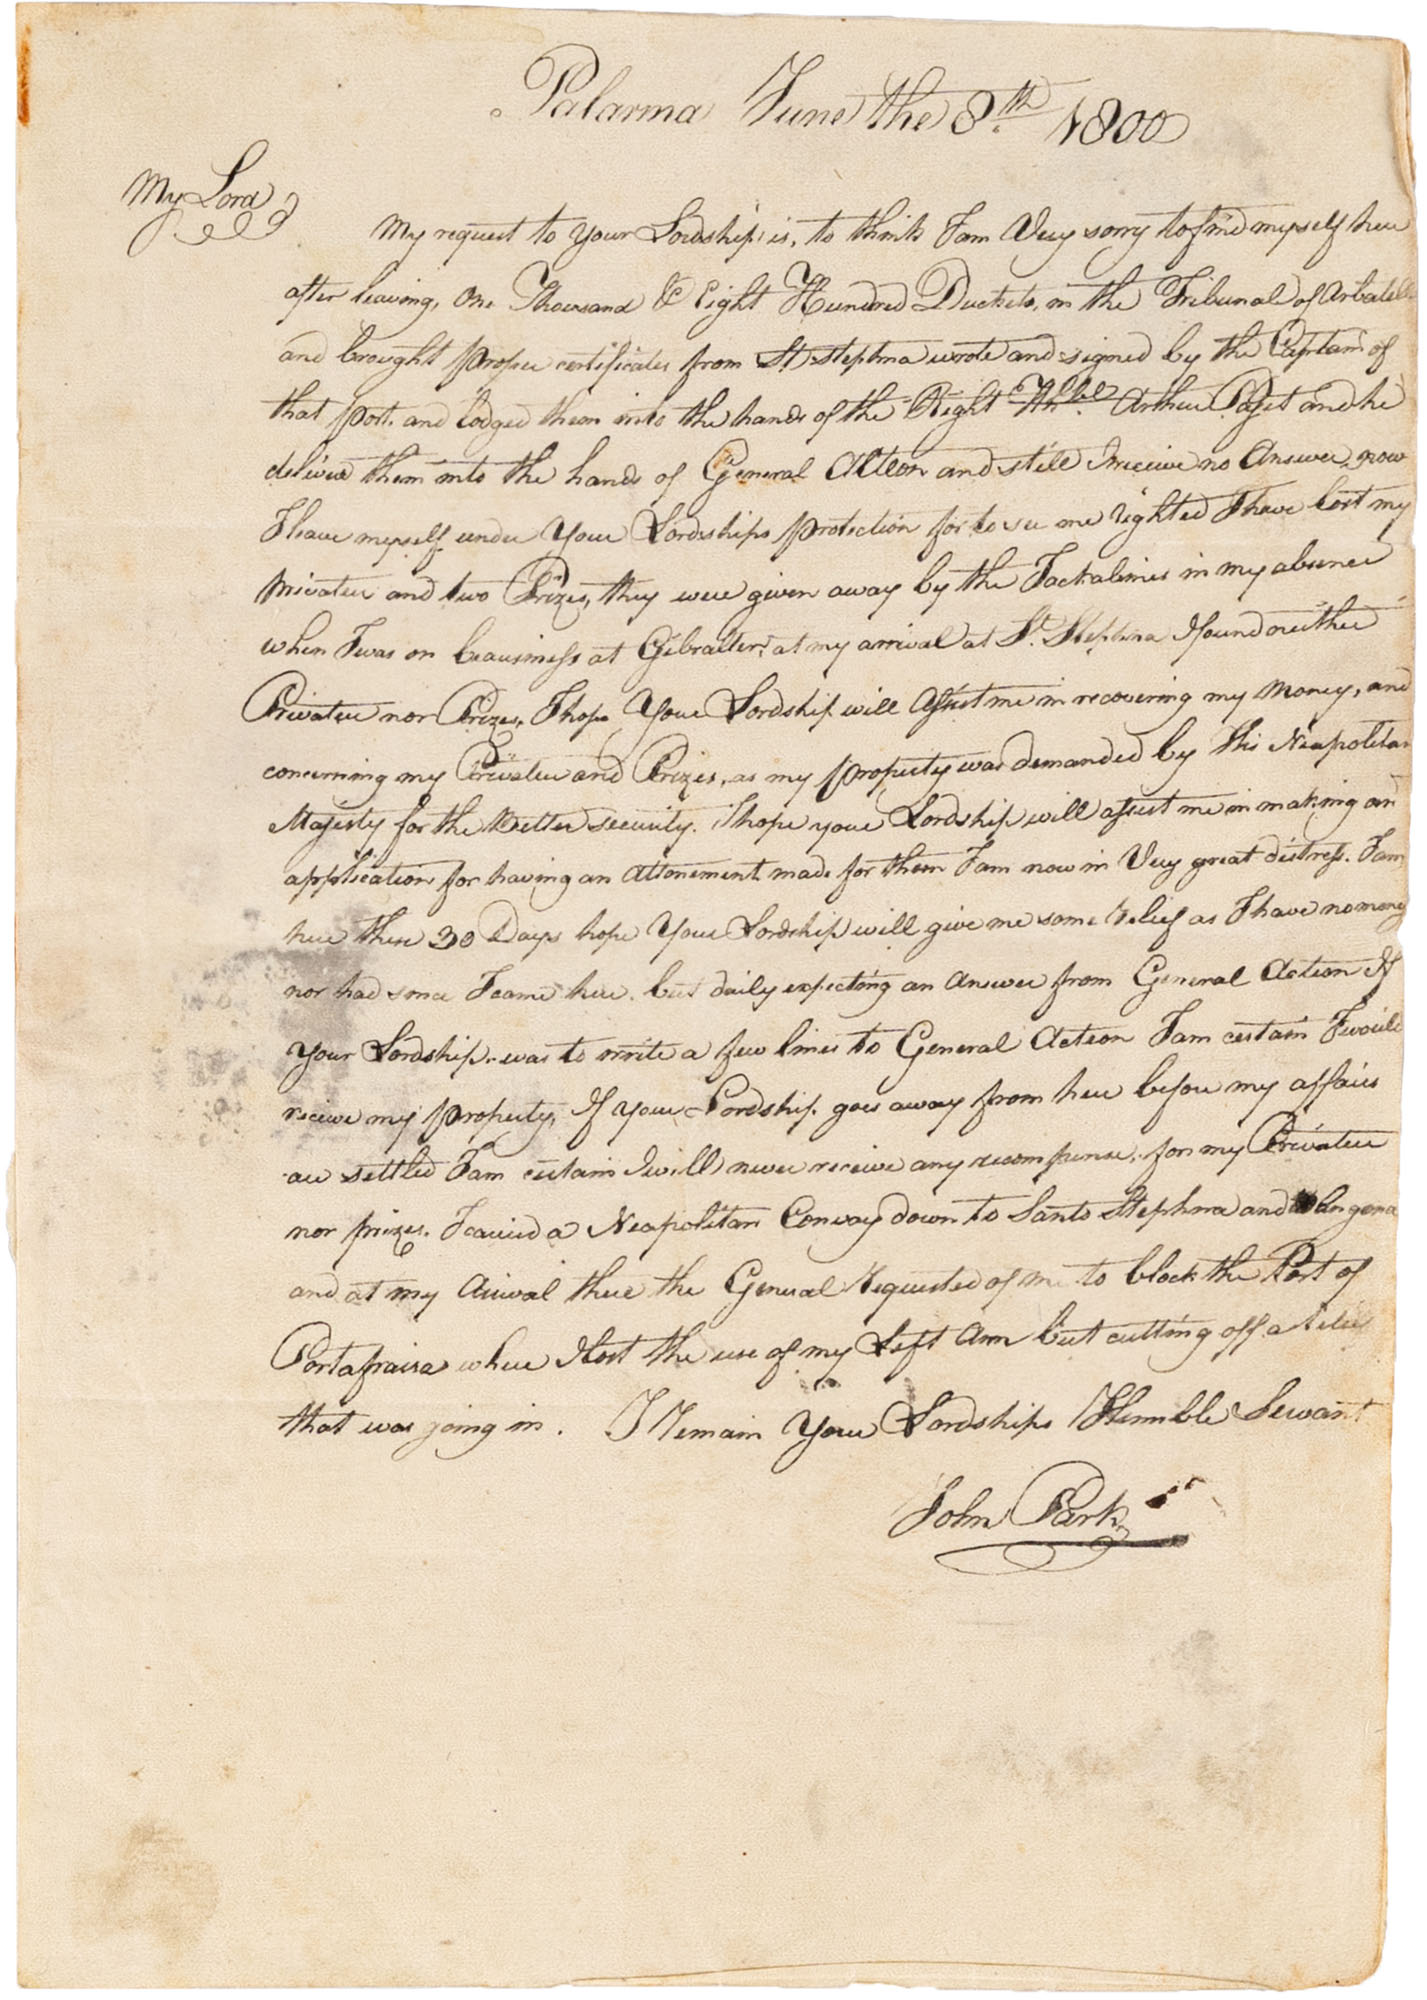 Palarma June the 8th 1800
My Lord
My request to your Lordship is, to think I am Very sorry to find myself here
after leaving, One Thousand & Eight Hundred Duckets, in the Tribunal of
and brought proper certificates from St Stephna wrote and signed by the Captain of
that port. and lodged them into the hands of the Right Arthur Paget and he
deliverd them into the hands of General Acteon and still I receive no Answer, now
I leave myself under Your Lordships protection for to see me righted I have lost my
Privateer and two Prizes, they were given away by the Jackalines in my absence
when I was on beausiness at Gibralter, at my arrival at St. Stephna I found neither
Privateer nor Prizes, I hope Your Lordship will Assist me in recovering my Money, and
concerning my Privateer and Prizes, as my property was demanded by His Neapolitan
Majesty for the Better security. I hope your Lordship will assist me in making an
application for having an attonement made for them I am now in Very great distress. I am
here these 30 Days hope Your Lordship will give me some Relief as I have no money
nor had since I came here. but daily expecting an Answer from General Acteon If
Your Lordship. was to write a few lines to General Acteon I am certain I would
receive my property, If your Lordship. goes away from here before my affairs
are settled I am certain I will never receive any recompense, for my Privateer
nor prizes. I carried a Neapolitan Convay down to Santo Stephna and
and at my Arrival there the General Requested of me to block the Port of
Portafraisa where I lost the use of my Left Arm but cutting off a Relief
that was going in. I Remain Your Lordships Humble Servant
John Park